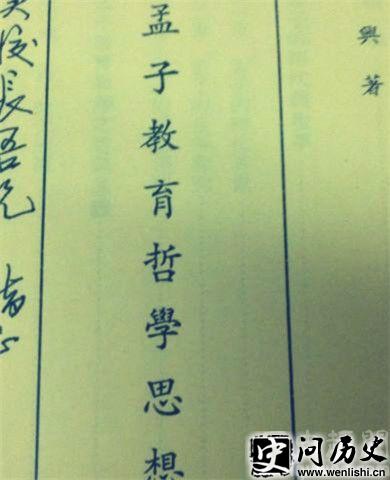 興著
孟子教育哲學思想
校長吾兄
史 问历史
www.wenlishi.com